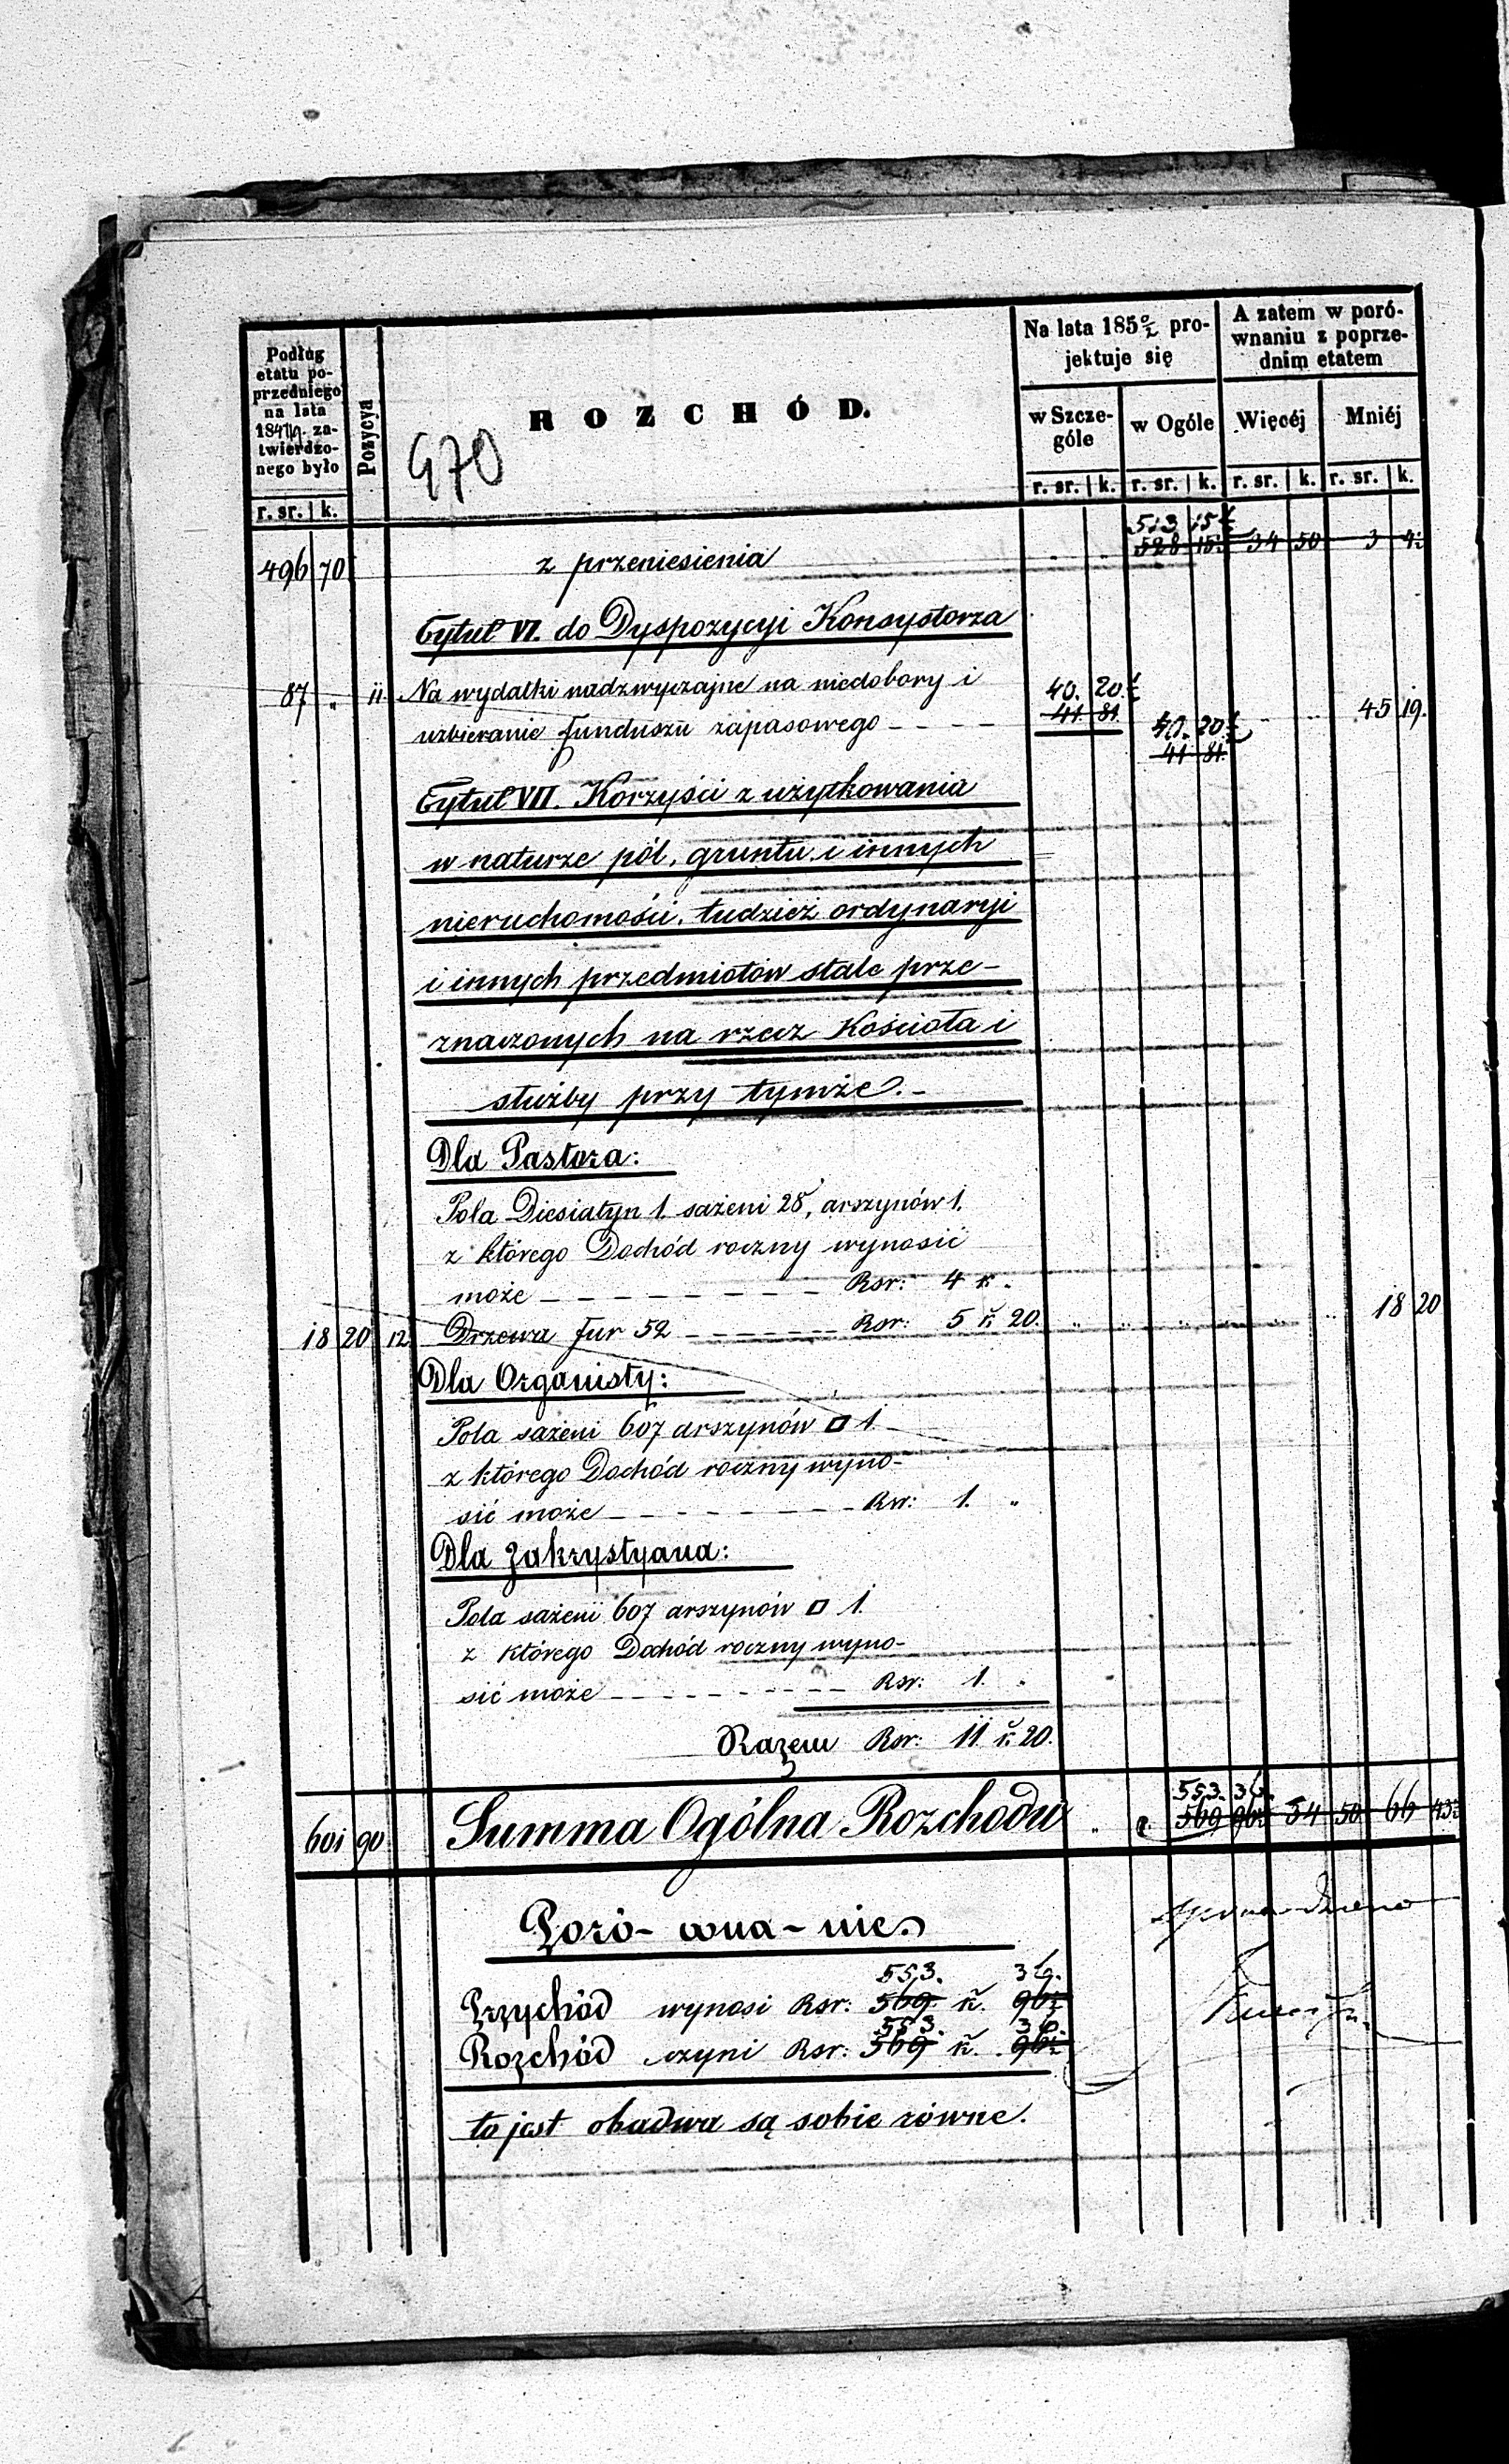 Podług etatu poprzedniego na lata 184 zatwierdzonego było
Pozycya
ROZCHÓD.
970
Na lata 185 0/2 projektuje się
A zatem w porównaniu z poprzednim etatem
w Szczególe
w Ogóle
Więcéj
Mniéj
r. sr. k. r. sr. k. r. sr. k. r. sr. k. r. sr. k.
513 15½
496 70 z przeniesienia " " 528 15½ 34 50 3 4½
Tytuł VI. do Dyspozycyi Konsystorza
87 " 11. Na wydatki nadzwyczajne na niedobory i 40. 20½
uzbieranie funduszu zapasowego - - - - 41 81. 45 19.
40. 20½
41 81.
Tytuł VII. Korzyści z użytkowania
w naturze pól, gruntu i innych
nieruchomości, tudzież ordynaryi
i innych przedmiotów stale prze-
znaczonych na rzecz Kościoła i
służby przy tymże. -
Dla Pastora:
Pola Diesiatyn 1. sażeni 28, arszynów 1.
z którego Dochód roczny wynosić
może - - - - - - - - Rsr: 4 k "
18 20 12. Drzewa fur 52 - - - - - - - Rsr: 5 k 20. " " " " " " 18 20
Dla Organisty:
Pola sażeni 607 arszynów □ 1.
z którego Dochód roczny wyno-
sić może - - - - - - - - Rsr: 1. "
Dla Zakrystyana:
Pola sażeni 607 arszynów □ 1.
z którego Dochód roczny wyno-
sić może - - - - - - - - - Rsr: 1. "
Razem Rsr: 11 k 20.
553. 36.
601 90. Summa Ogólna Rozchodu 569 96½ 34 50 66 43½
Poró-wna-nie
553. 36.
Przychód wynosi Rsr: 569 k. 96½
553. 36.
Rozchód czyni Rsr: 569 k. 96½
to jest obadwa są sobie równe.